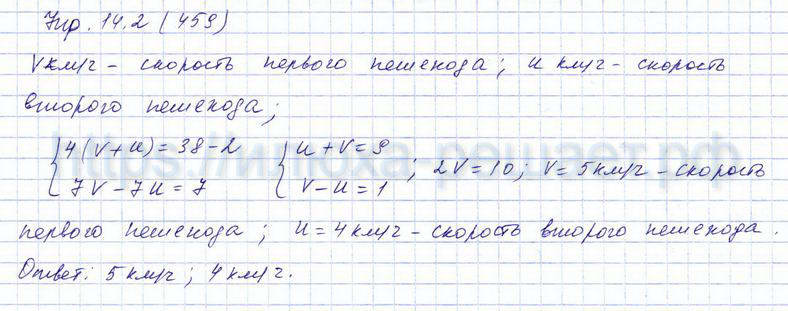 Упр. 14.2 (459)
V км/г - скорость первого пешехода; u км/г - скорость
второго пешехода;
{4(V+u)=38-2 {u+V=9
{7V-7u=7 {V-u=1 ; 2V=10; V=5км/г - скорость
первого пешехода; u=4км/г - скорость второго пешехода.
Ответ: 5км/г; 4км/г.
https://илюха-решает.рф